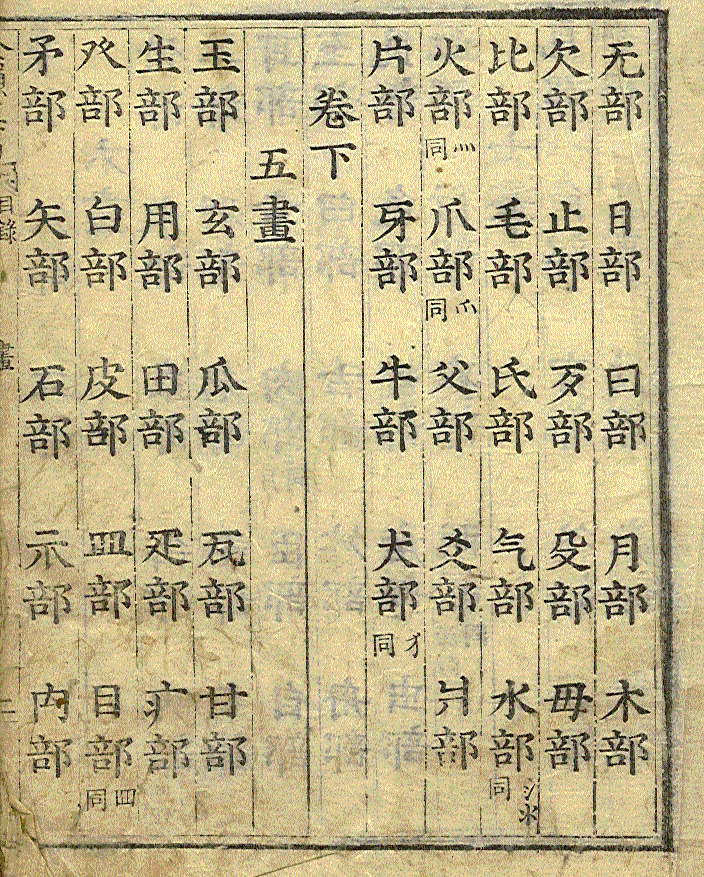 无部 日部 曰部 月部 木部
欠部 止部 歹部 殳部 毋部
比部 毛部 氏部 气部 水部 氵氺同
火部 灬同 爪部 爫同 父部 爻部 爿部
片部 牙部 牛部 犬部 犭同
卷下
五畫
玉部 玄部 瓜部 瓦部 甘部
生部 用部 田部 疋部 疒部
癶部 白部 皮部 皿部 目部 罒同
矛部 矢部 石部 示部 禸部
目錄 畫